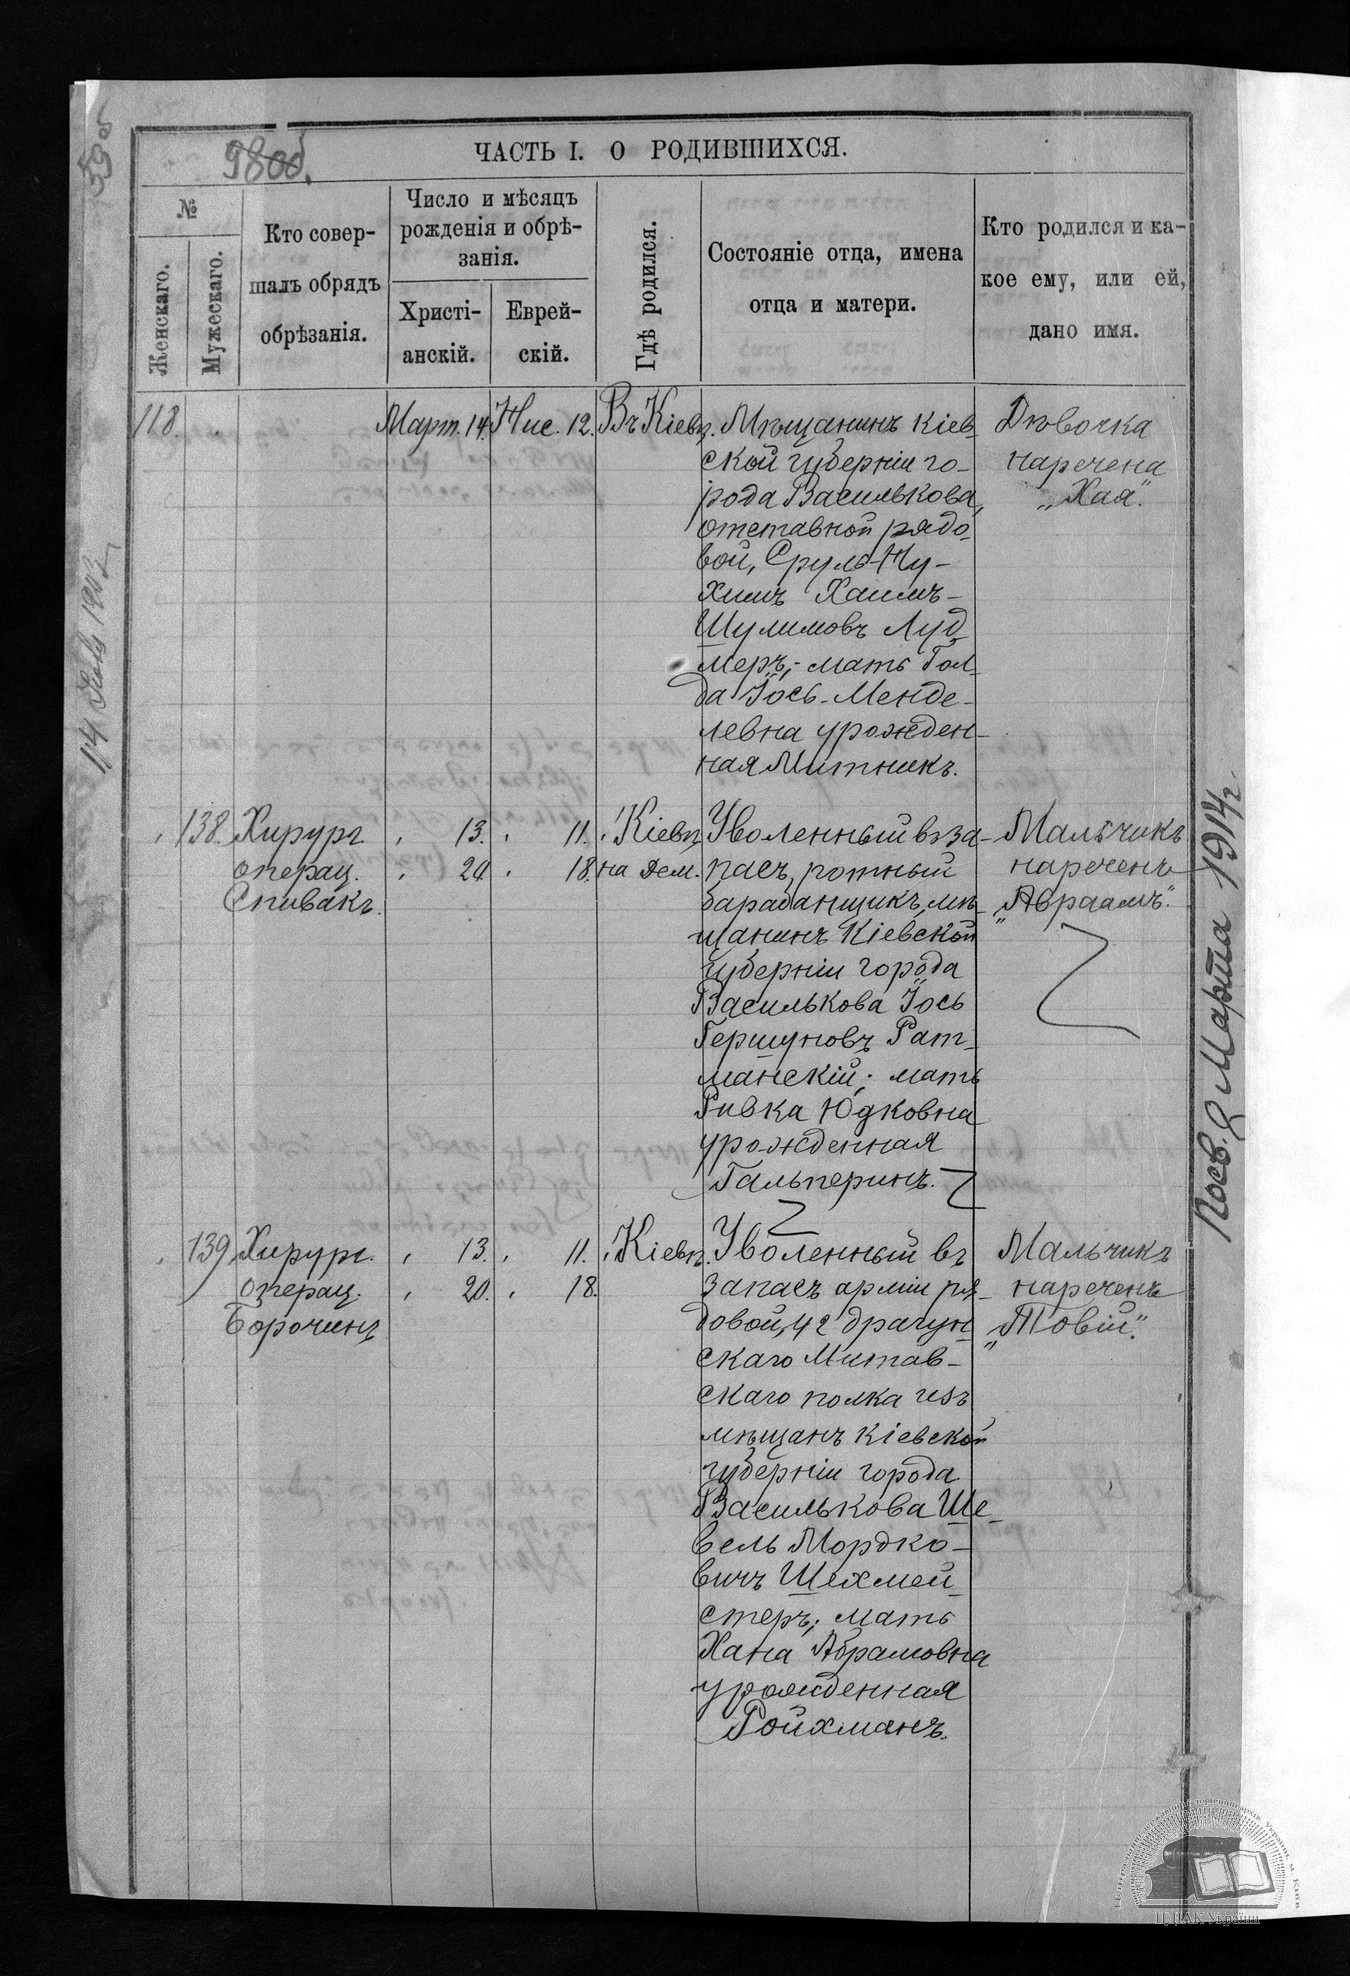 980об.
ЧАСТЬ I. О РОДИВШИХСЯ.
№
Женскаго.
Мужескаго.
Кто совер-
шалъ обрядъ
обрѣзанія.
Число и мѣсяцъ
рожденія и обрѣ-
занія.
Христі-
анскій.
Еврей-
скій.
Гдѣ родился.
Состояніе отца, имена
отца и матери.
Кто родился и ка-
кое ему, или ей,
дано имя.
118.
Март. 14.
Нис. 12.
Въ Кіевѣ.
Мѣщанинъ Кіев-
ской губерніи го-
рода Василькова,
отставной рядо-
вой, Сруль-Ну-
химъ Хаимъ-
Шулимовъ Луд-
меръ, - мать Гол-
да Іось-Менде-
левна урожден-
ная Митникъ.
Дѣвочка
наречена
„Хая".
138.
Хирург.
операц.
Спивакъ.
13.
20.
11.
18.
Кіевѣ
на Дем.
Уволенный въ за-
пасъ, ротный
барабанщикъ, мѣ-
щанинъ Кіевской
губерніи города
Василькова Іось
Гершуновъ Рат-
манскій; мать
Ривка Юдковна
урожденная
Гальперинъ.
Мальчикъ
нареченъ
„Авраамъ".
139.
Хирург.
операц.
Борочинъ
13.
20.
11.
18.
Кіевѣ.
Уволенный въ
запасъ арміи ря-
довой, 42 драгун-
скаго Митав-
скаго полка изъ
мѣщанъ Кіевской
губерніи города
Василькова Ше-
вель Мордко-
вичъ Шехмей-
стеръ; мать
Хана Абрамовна
урожденная
Ройхманъ.
Мальчикъ
нареченъ
„Товій".
14 1912
Посв. 9 Марта 1914 г.
ЦДІАК України